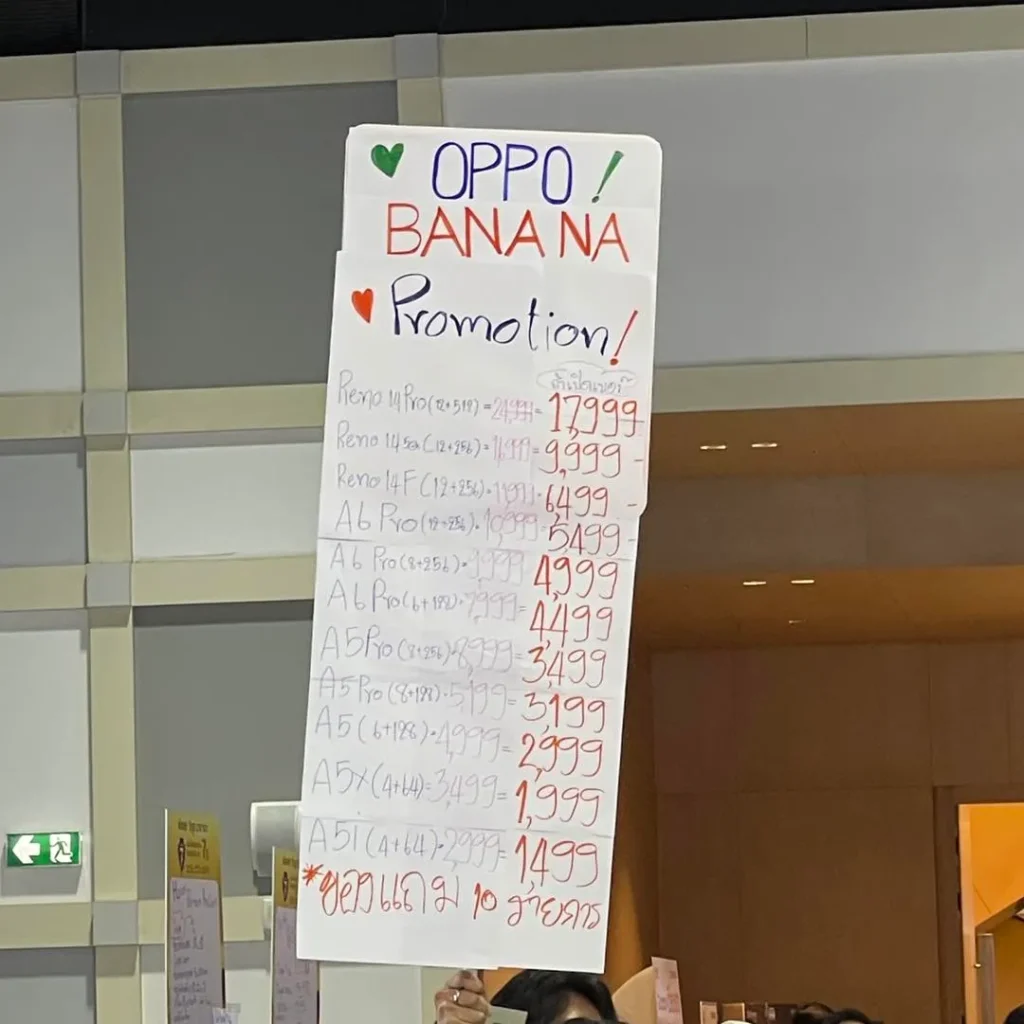 OPPO !
BANANA
Promotion!
ถ้าเปิดเบอร์
Reno 14Pro(12+512) = 24,999 = 17,999
Reno 14 5G (12+256) = 16,999 = 9,999 -
Reno 14F(12+256) • 11,999 • 6,499 -
A6 Pro(12+256) • 10,999 = 5,499 -
A6 Pro(8+256) • 9,999 4,999
A6 Pro(6+128) • 7,999 = 4,499
A5Pro(8+256) • 8,999 = 3,499
A5Pro(8+128) • 5,199 = 3,199
A5(6+128) • 4,999 = 2,999
A5x(4+64) = 3,499 = 1,999
A5i(4+64) • 2,999 = 1,499
*ของแถม 10 รายการ